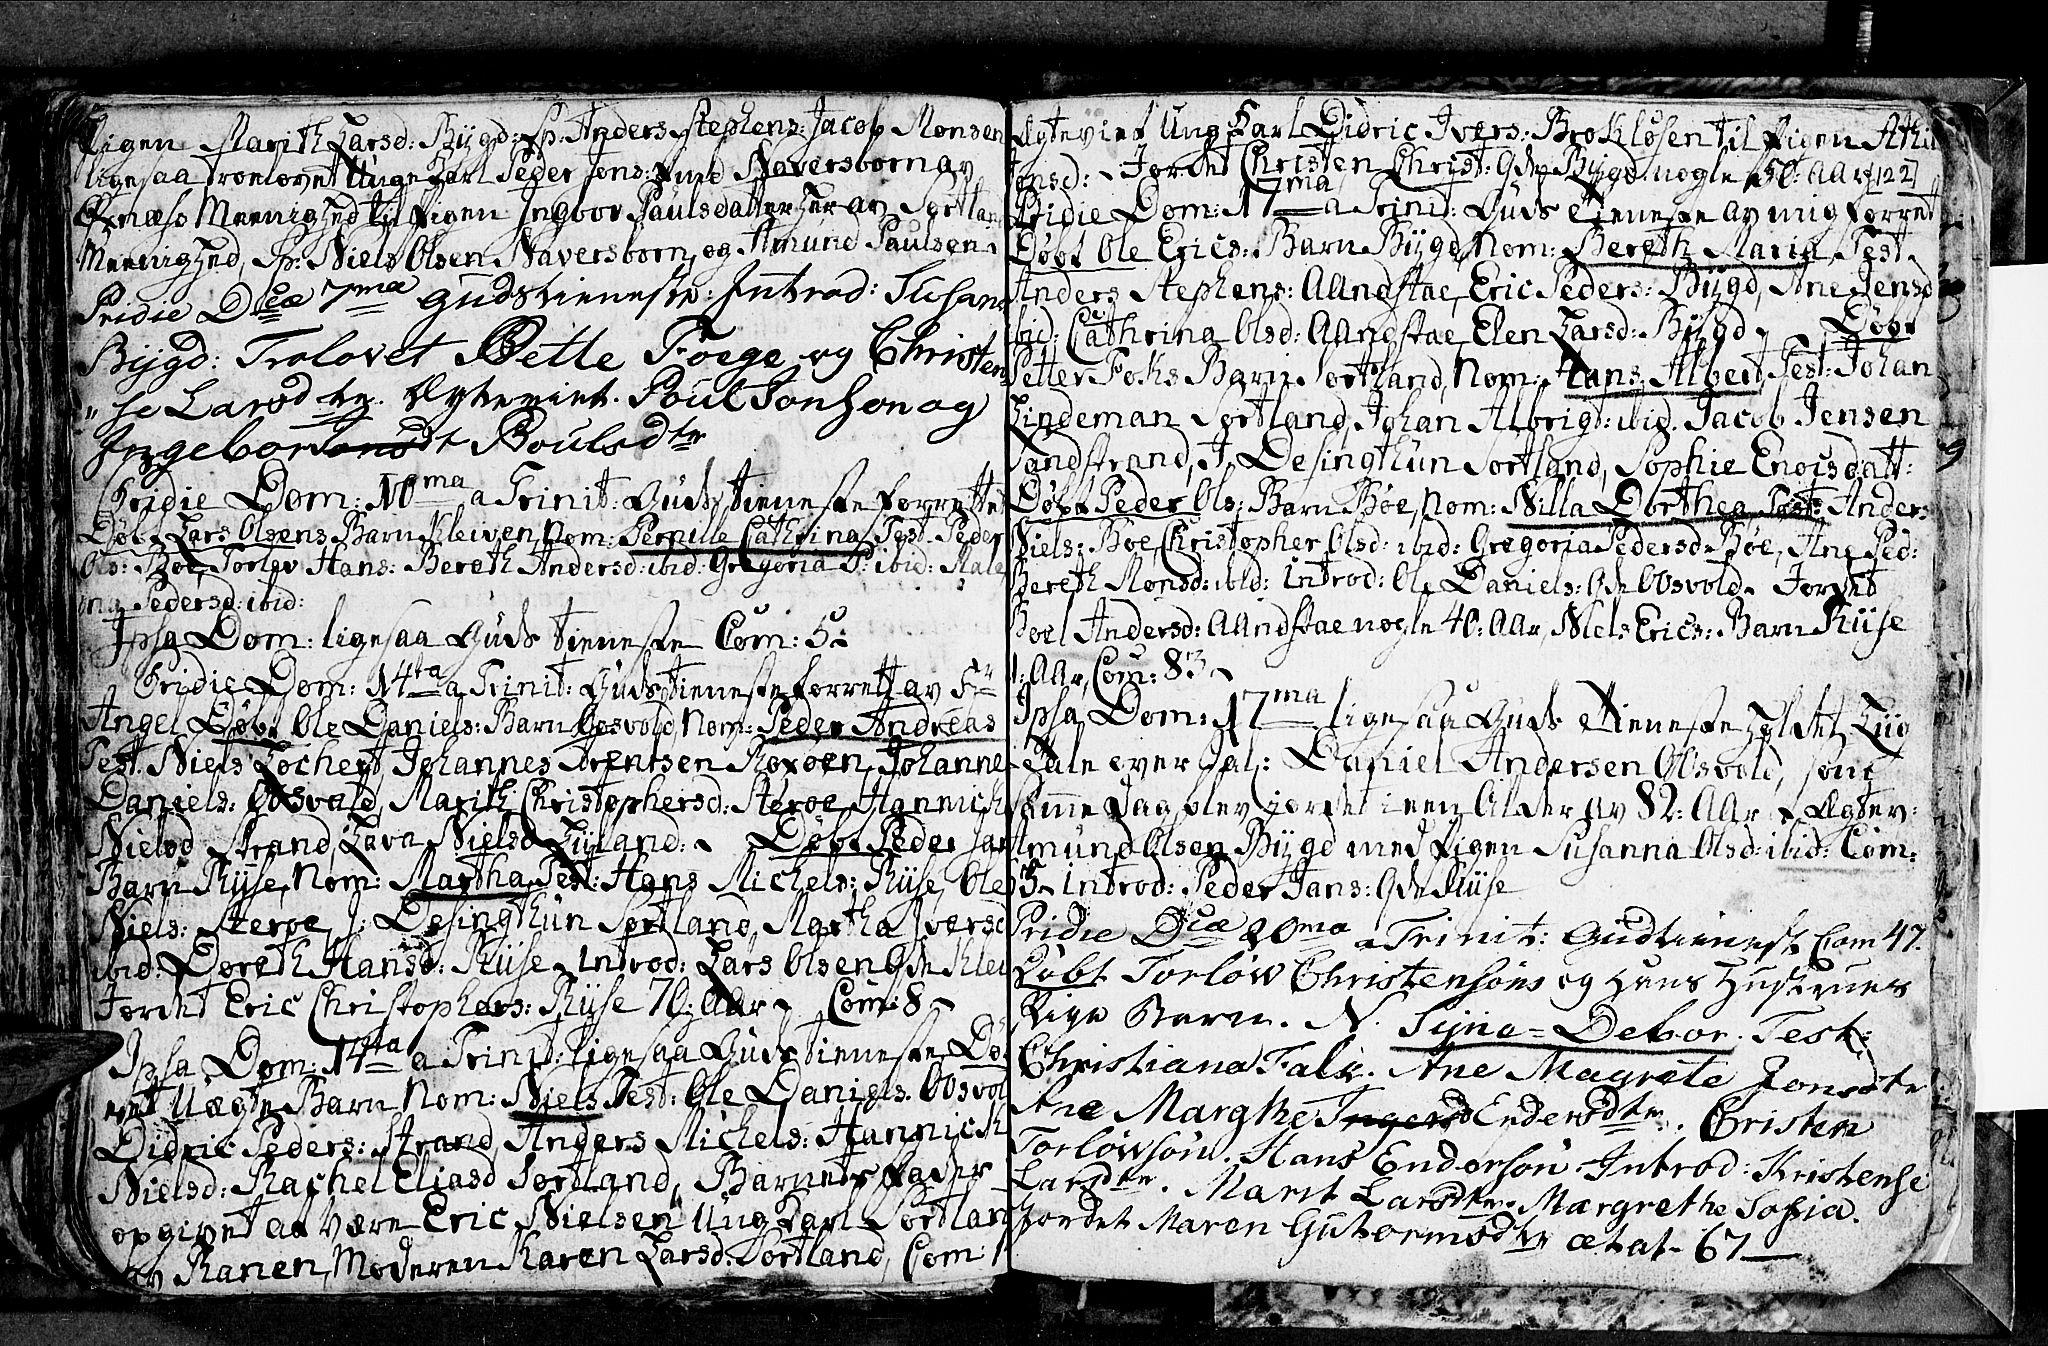 Pigen Marith Larsd: Bÿgd: Sp: Anders Stephens: Jacob Monsen
ligesaa Troelovet Unge Karl Peder Jons: Naversborn av
Menighed til Pigen Ingbor Paulsdatter her av Sortland
Meenighed, Sp: Niels Olsen Naversborn og Amund Paulsen
Pridie Dca 7ma Gudstieneste: Introd: Susana
Bijgd: Trolovet Pette Foege og Christen
se Larsdtr. Ægteviet. Poul Jonson og
Ingebor Poulsdtr
Pridie Dom: 10ma a Trinit: Guds tieneste forrettet
Døbt Lars Olsens Barn Kleiven, Nom: Pernille Cathrina, Test: Peder
Ols: Bøe, Torlev Hans: Bereth Andersd: ibid: Gregoria P: ibid: Male
na Pedersd: ibid:
Ipsa Dom: ligesaa Guds tieneste Com: 5.
Pridie Dom: 14ta a Trinit: Guds tieneste forrett av Hr
Angel Døbt Ole Daniels: Barn Oosvold, Nom: Peder Andreas
Test: Niels Lochert, Johannes Arentsen Roxøen, Johanne
Daniels: Oosvald, Marith Christophersd: Sterøe, Hannich
Nielsd Strand, Lava Nielsd Kyland: Døbt Peder Jans
Barn Riise, Nom: Martha, Test: Hans Michels: Riise, Ole
Niels: Sterøe, J: Desingthun Sortland, Martha Iversd
ibid: Doreth Hansd: Riise, Introd: Lars Olsen Qde Klei
Jordet Eric Christophers: Riise 70: Aar Com: 8
Ipsa Dom: 14ta a Trinit: ligesaa Guds tieneste Dø
et Uægte Barn Nom: Niels Test: Ole Daniels: Oosvol
Didric Peders: Strand, Anders Michels: Hannich
Nielsd: Rachel Eliasd Sortland, Barnets Fader
opgivet at være Eric Nielsen Ung Karl Sortlan
av Ranen, Moderen Karen Larsd: Sortland, Com: 1
Ægteviet Ung Karl Didric Ivers: Brokløsen til Pigen
Jonsd: Jordet Christen Christ: Qde Bygd nogle 50: Aar [122]
Pridie Dom: 17ma a Trinit: Guds tieneste av mig forret
Døbt Ole Erics: Barn Bÿgd, Nom: Bereth Maria, Test
Anders Stephens: Aandstae, Eric Peders: Bÿgd, Ane Jensd
ibid: Cathrina Olsd: Aandstae, Elen Larsd: Bÿgd Døbt
Petter Foks Barn Sortland, Nom: Hans Albert, Test: Johan
Lindeman Sortland, Johan Albrigt: ibid. Jacob Jensen
Sandstrand, J. Desingthun Sortland, Sophie Enocsdatt:
Døbt Peder Ols: Barn Bøe, Nom: Nilla Dorthea Test: Anders
Niels: Bøe, Christopher Olsd: ibid: Gregoria Pedersd: Bøe, Ane Ped:
Bereth Monsd: ibid: Introd: Ole Daniels: Qde Oosvold. Jordet
Boel Andersd: Aandstae nogle 40: Aar, Niels Erics: Barn Riise
1: Aar, Com: 83
Ipsa Dom: 17ma ligesaa Guds tieneste holdet, Liig
tale over Sal: Daniel Andersen Oosvold, som
same Dag blev jordet i een Alder av 82: Aar Ægtev:
Amund Olsen Bÿgd med Pigen Susanna Olsd: ibid: Com:
3. Introd: Peder Jans: Qde Riise
Pridie Dca 20ma a Trinit: Gudstienest Com 47.
Døbt Torlöw Christensöns og hans Hustrues
Pige Barn. N. Sijna=Debor. Test:
Christiana Falk. Ane Magrete Jonsdtr
Ane Margthe Endersdtr. Christen
Torlöwsön. Hans Endersön Introd: Kristense
Larsdtr. Marit Larsdtr. Margrethe Sofia.
Jordet Maren Guttormsdtr ætat- 67